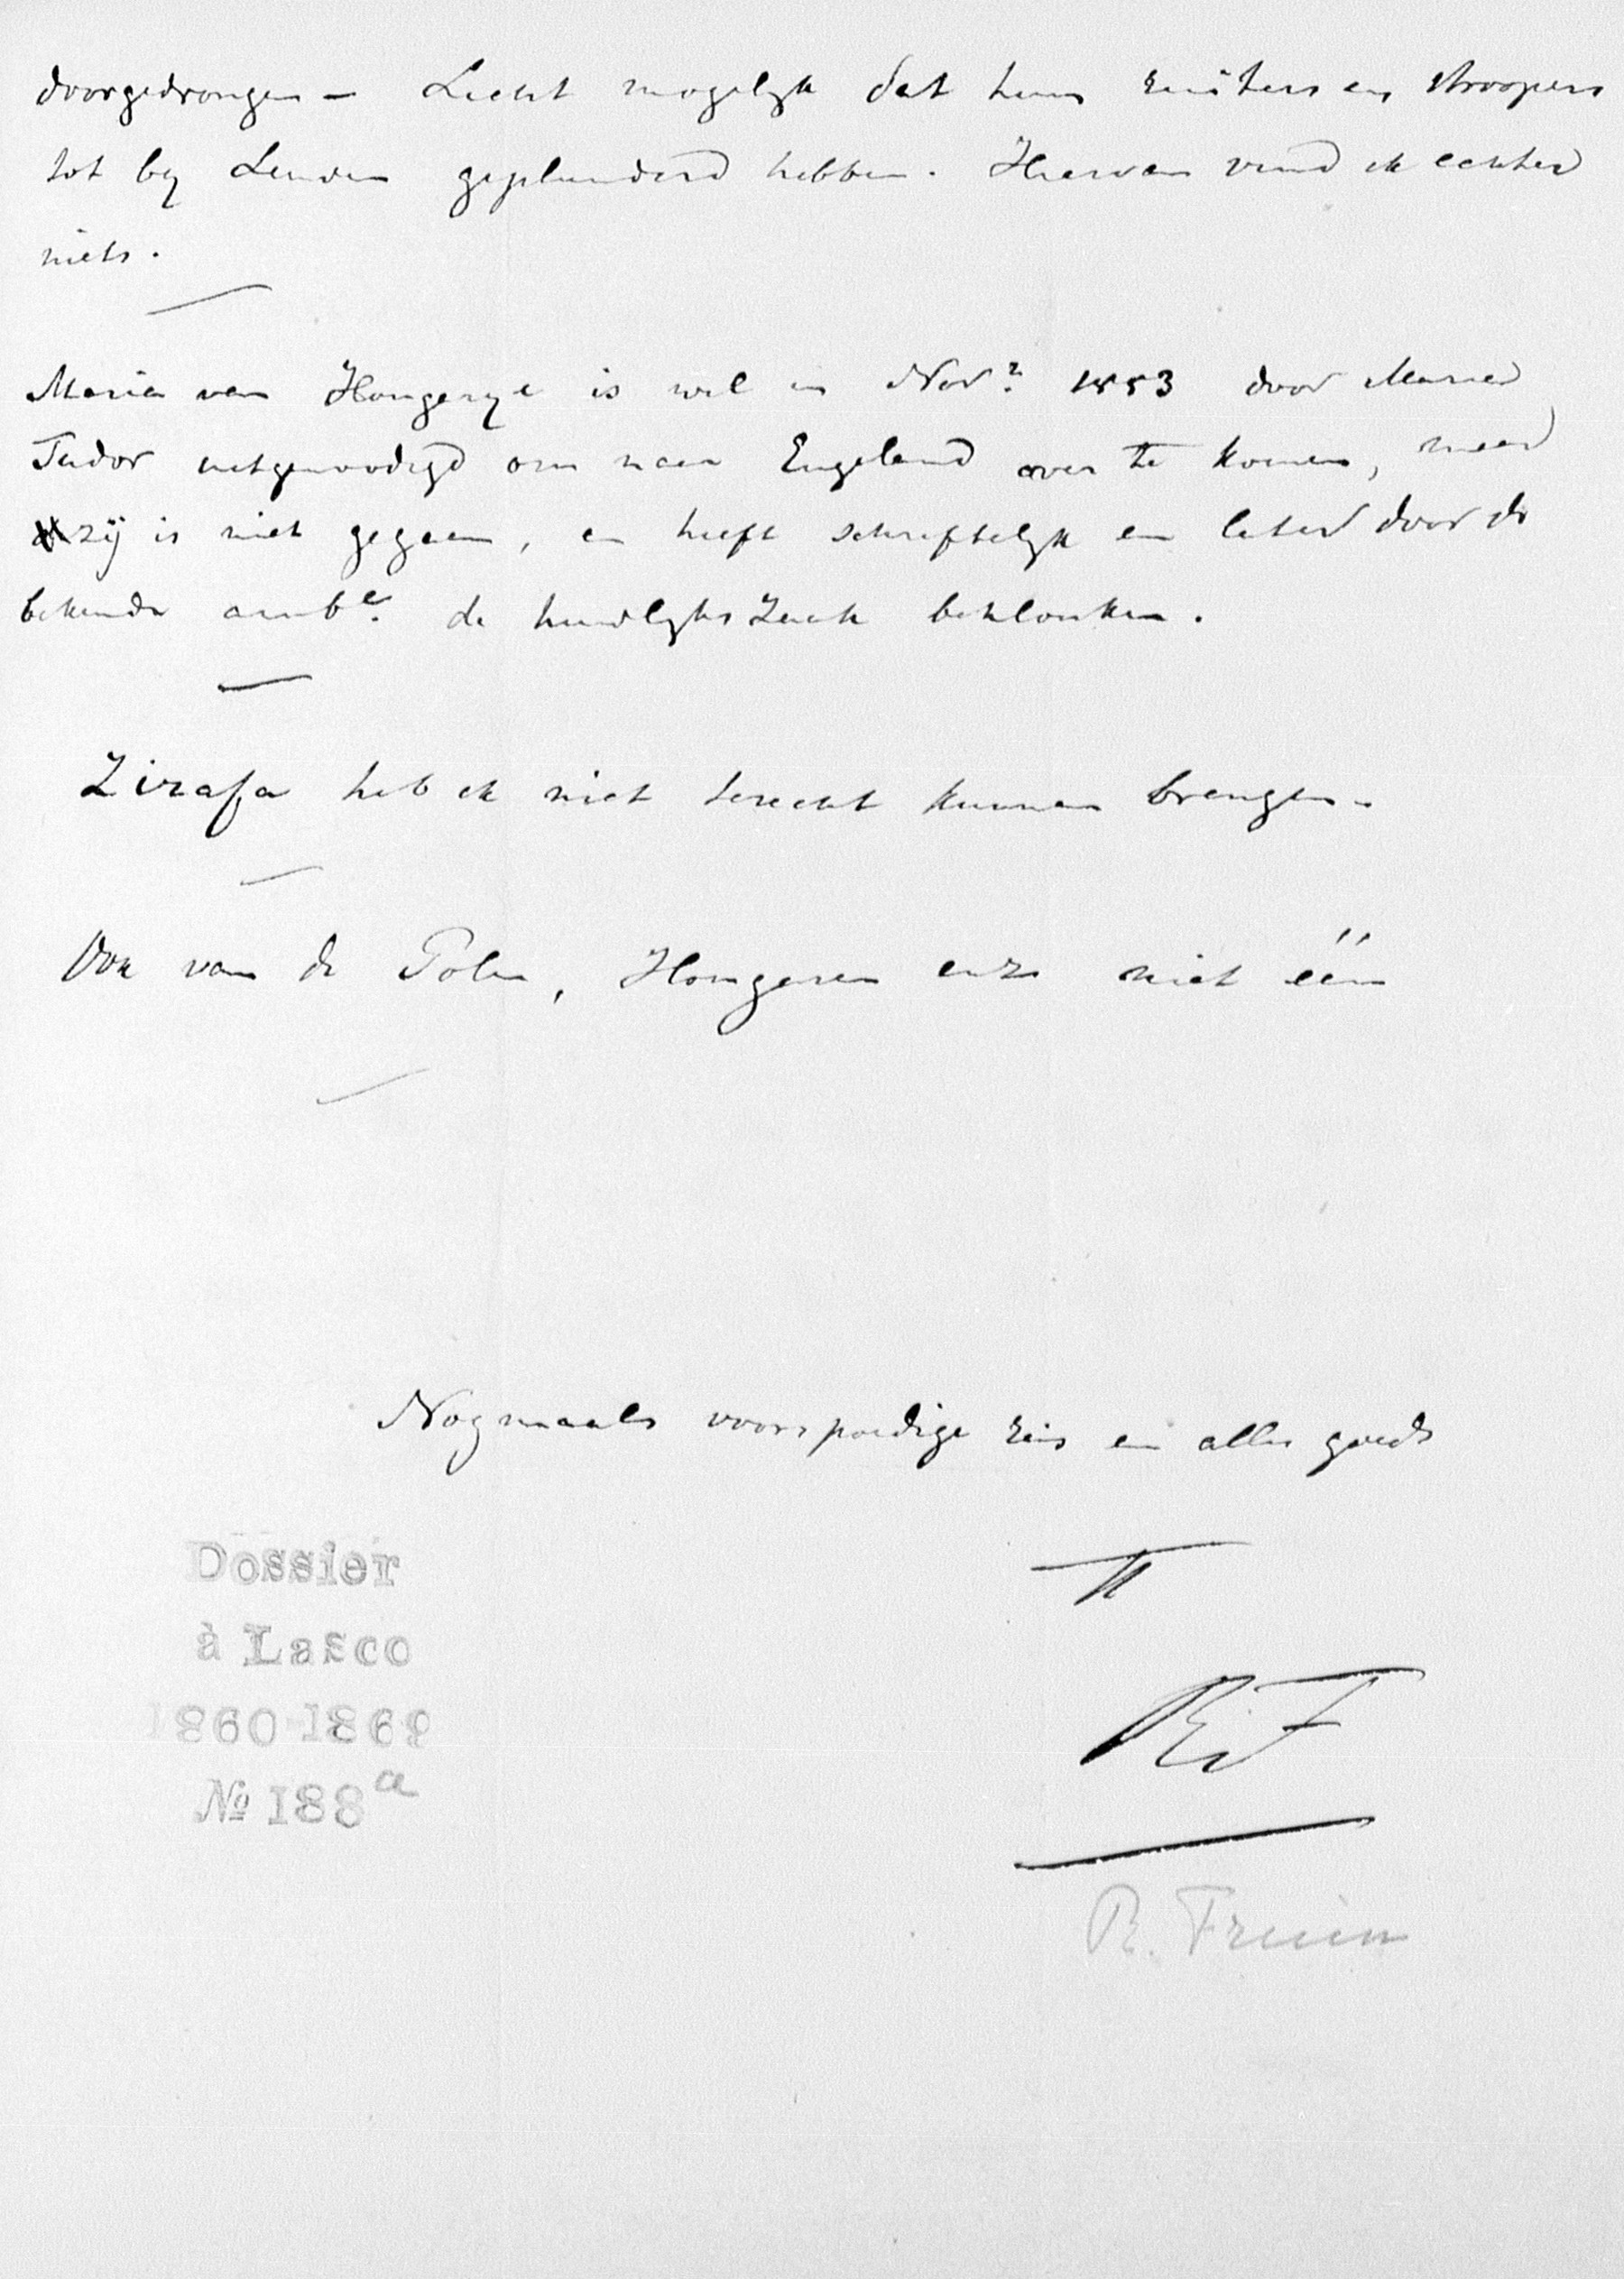 doorgedrongen – Licht mogelyk dat hun ruiters en stroopers
tot by Leuven geplunderd hebben. Hiervan vind ik echter
niets.
Maria van Hongarye is wel in Novr. 1553 door Maria
Tudor uitgenoodigd om naar Engeland over te komen, maar
zij is niet gegaan, en heeft schriftelyk en later door de
bekende ambe. de huwlyks zaak beklonken.
Zirafa heb ik niet terecht kunnen brengen.
Ook van de Polen, Hongaren enz niet één
Nogmaals voorspoedige reis en alles goeds
TT
RF
R. Fruin
Dossier
à Lasco
1860-1869
№ 188a